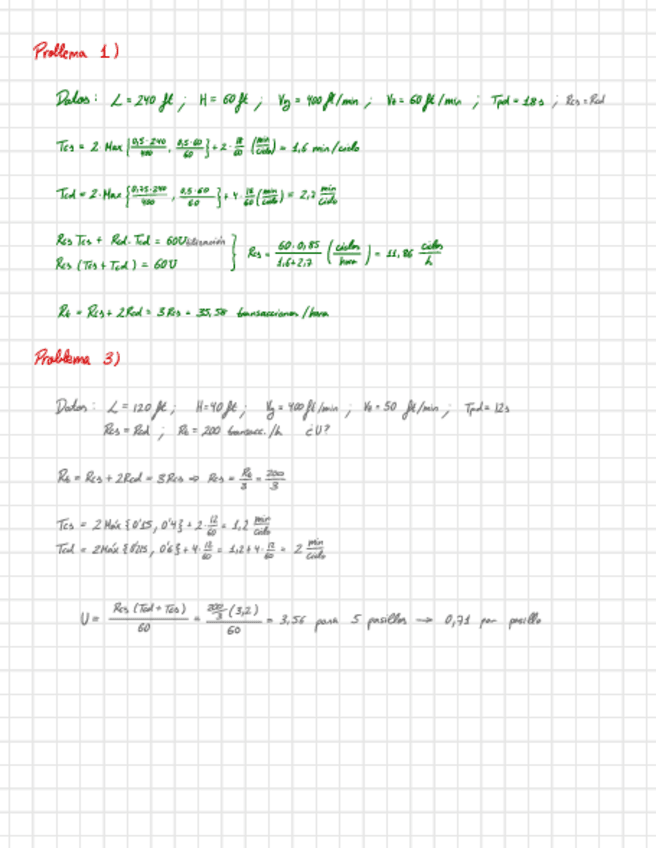 Problema 1)
Datos: L = 240 ft ; H = 60 ft ; Vy = 400 ft/min ; Vz = 60 ft/min ; Tpd = 18s ; Rcs = Rcd
Tcs = 2·Max {0,5·240/400, 0,5·60/60} + 2·18/60 (min/ciclo) = 1,6 min/ciclo
Tcd = 2·Max {0,75·240/400, 0,5·60/60} + 4·18/60 (min/ciclo) = 2,7 min/ciclo
Rcs Tcs + Rcd·Tcd = 60Utilización
Rcs (Tcs + Tcd) = 60U
Rcs = 60·0,85/1,6+2,7 (ciclos/hora) = 11,86 ciclos/h
Rt = Rcs + 2Rcd = 3Rcs = 35,58 transacciones/hora
Problema 3)
Datos: L = 120 ft ; H = 40 ft ; Vy = 400 ft/min ; Vz = 50 ft/min ; Tpd = 12s
Rcs = Rcd ; Rt = 200 transacc./h ¿U?
Rt = Rcs + 2Rcd = 3Rcs ⇒ Rcs = Rt/3 = 200/3
Tcs = 2 Máx {0'15, 0'4} + 2·12/60 = 1,2 min/ciclo
Tcd = 2Máx + 4·12/60 = 1,2 + 4·12/60 = 2 min/ciclo
U = Rcs (Tcd + Tcs)/60 = 200/3 (3,2)/60 = 3,56 para 5 pasillos → 0,71 por pasillo